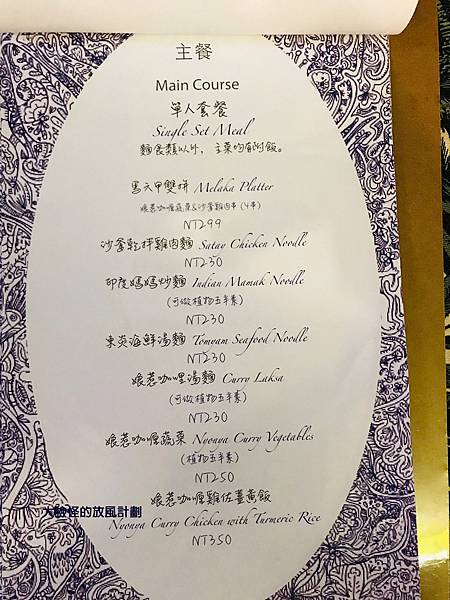 主餐
Main Course
單人套餐
Single Set Meal
麵食類以外，主菜均有附飯。
馬六甲雙拼 Melaka Platter
娘惹咖喱蔬菜&沙爹雞肉串(4串)
NT299
沙爹乾拌雞肉麵 Satay Chicken Noodle
NT230
印度媽媽炒麵 Indian Mamak Noodle
(可做植物五辛素)
NT230
東炎海鮮湯麵 Tomyam Seafood Noodle
NT230
娘惹咖哩湯麵 Curry Laksa
(可做植物五辛素)
NT230
娘惹咖喱蔬菜 Nyonya Curry Vegetables
(植物五辛素)
NT250
娘惹咖喱雞佐薑黃飯
大臉怪的放風計劃
Nyonya Curry Chicken with Turmeric Rice
NT350